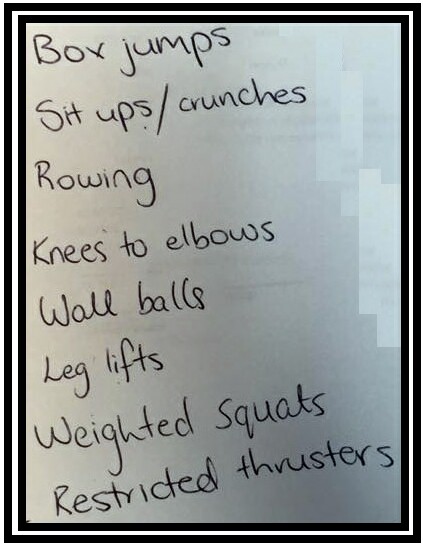 Box jumps
Sit ups/crunches
Rowing
Knees to elbows
Wall balls
Leg lifts
Weighted squats
Restricted thrusters